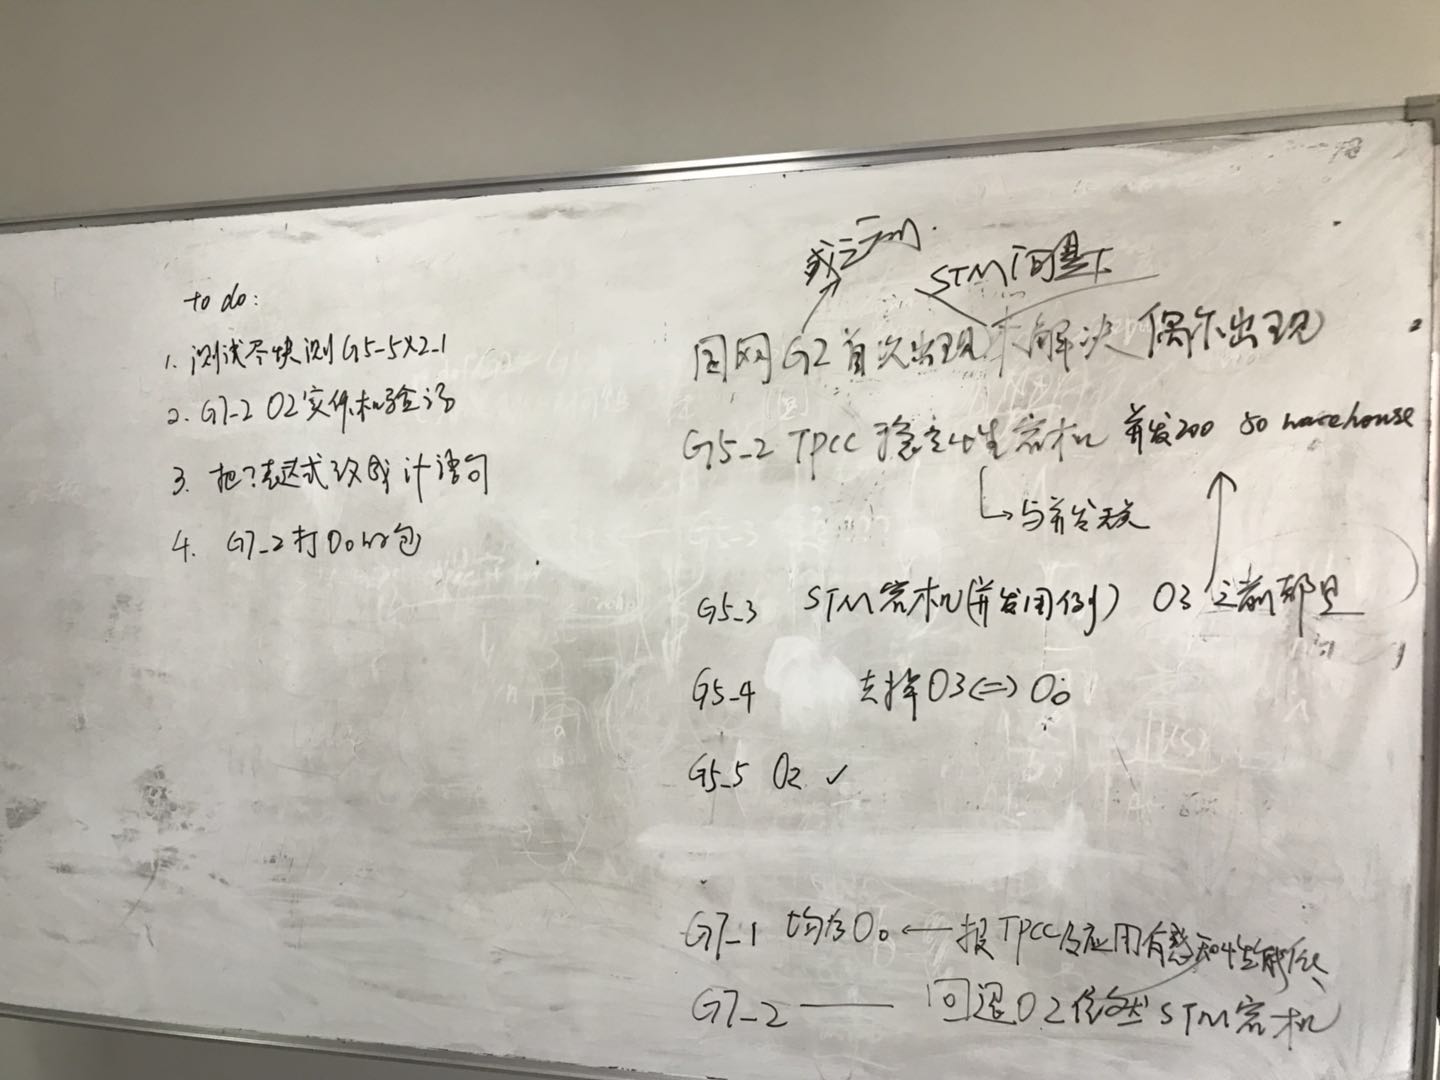 to do:
1. 测试尽快测G5-5X2_1
2. G7-2 O2实体机验证
3. 把?表达式改成 计语句
4. G7_2打O0的包
STM问题
国网G2首次出现 未解决 偶尔出现
G5_2 TPCC 稳定性宕机 并发200 50 warehouse
与并发无关
G5_3 STM宕机(并发用例) O3 之前都是
G5_4 去掉O3(=) O0
G5_5 O2 ✓
G7_1 均为O0 ← 报TPCC及应用有感知性能低
G7_2 —— 回退O2依然STM宕机